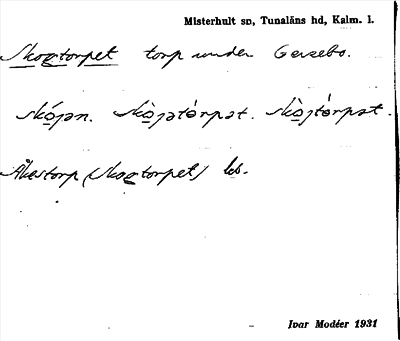 Misterhult sn, Tunaläns hd, Kalm. l.
Skogtorpet torp under Gersebo.
skójan. skòjatórpat. skòjtórpat.
Åkestorp (Skogtorpet) kb.
Ivar Modéer 1931